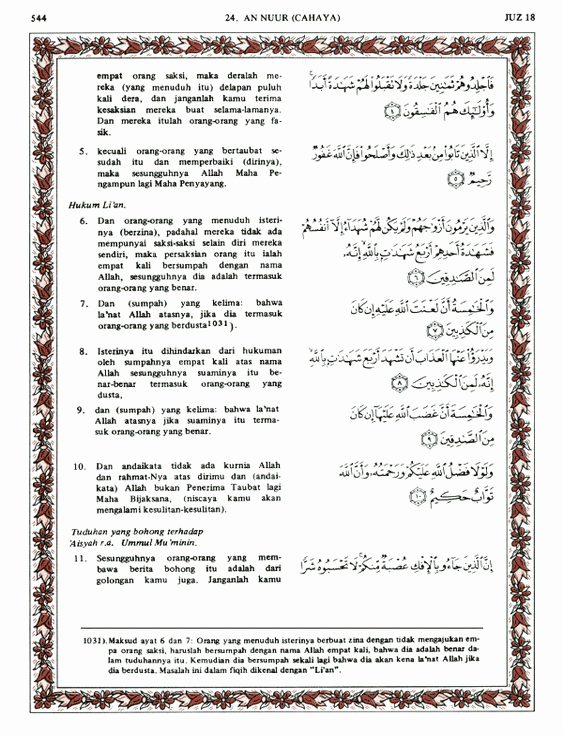 544
24. AN NUUR (CAHAYA)
JUZ 18
empat orang saksi, maka deralah me-
reka (yang menuduh itu) delapan puluh
kali dera, dan janganlah kamu terima
kesaksian mereka buat selama-lamanya.
Dan mereka itulah orang-orang yang fa-
sik.
فَاجْلِدُوهُمْ ثَمَـٰنِينَ جَلْدَةً وَلَا تَقْبَلُوا۟ لَهُمْ شَهَـٰدَةً أَبَدًا ۚ
وَأُو۟لَـٰٓئِكَ هُمُ ٱلْفَـٰسِقُونَ ﴿٤﴾
5. kecuali orang-orang yang bertaubat se-
sudah itu dan memperbaiki (dirinya),
maka sesungguhnya Allah Maha Pe-
ngampun lagi Maha Penyayang.
إِلَّا ٱلَّذِينَ تَابُوا۟ مِنۢ بَعْدِ ذَٰلِكَ وَأَصْلَحُوا۟ فَإِنَّ ٱللَّهَ غَفُورٌ
رَّحِيمٌ ﴿٥﴾
Hukum Li'an.
6. Dan orang-orang yang menuduh isteri-
nya (berzina), padahal mereka tidak ada
mempunyai saksi-saksi selain diri mereka
sendiri, maka persaksian orang itu ialah
empat kali bersumpah dengan nama
Allah, sesungguhnya dia adalah termasuk
orang-orang yang benar.
وَٱلَّذِينَ يَرْمُونَ أَزْوَٰجَهُمْ وَلَمْ يَكُن لَّهُمْ شُهَدَآءُ إِلَّآ أَنفُسُهُمْ
فَشَهَـٰدَةُ أَحَدِهِمْ أَرْبَعُ شَهَـٰدَٰتٍۭ بِٱللَّهِ ۙ إِنَّهُۥ
لَمِنَ ٱلصَّـٰدِقِينَ ﴿٦﴾
7. Dan (sumpah) yang kelima: bahwa
la'nat Allah atasnya, jika dia termasuk
orang-orang yang berdusta1031).
وَٱلْخَـٰمِسَةُ أَنَّ لَعْنَتَ ٱللَّهِ عَلَيْهِ إِن كَانَ
مِنَ ٱلْكَـٰذِبِينَ ﴿٧﴾
8. Isterinya itu dihindarkan dari hukuman
oleh sumpahnya empat kali atas nama
Allah sesungguhnya suaminya itu be-
nar-benar termasuk orang-orang yang
dusta,
وَيَدْرَؤُا۟ عَنْهَا ٱلْعَذَابَ أَن تَشْهَدَ أَرْبَعَ شَهَـٰدَٰتٍۭ بِٱللَّهِ ۙ
إِنَّهُۥ لَمِنَ ٱلْكَـٰذِبِينَ ﴿٨﴾
9. dan (sumpah) yang kelima: bahwa la'nat
Allah atasnya jika suaminya itu terma-
suk orang-orang yang benar.
وَٱلْخَـٰمِسَةَ أَنَّ غَضَبَ ٱللَّهِ عَلَيْهَآ إِن كَانَ
مِنَ ٱلصَّـٰدِقِينَ ﴿٩﴾
10. Dan andaikata tidak ada kurnia Allah
dan rahmat-Nya atas dirimu dan (andai-
kata) Allah bukan Penerima Taubat lagi
Maha Bijaksana, (niscaya kamu akan
mengalami kesulitan-kesulitan).
وَلَوْلَا فَضْلُ ٱللَّهِ عَلَيْكُمْ وَرَحْمَتُهُۥ وَأَنَّ ٱللَّهَ
تَوَّابٌ حَكِيمٌ ﴿١٠﴾
Tuduhan yang bohong terhadap
'Aisyah r.a. Ummul Mu'minin.
11. Sesungguhnya orang-orang yang mem-
bawa berita bohong itu adalah dari
golongan kamu juga. Janganlah kamu
إِنَّ ٱلَّذِينَ جَآءُو بِٱلْإِفْكِ عُصْبَةٌ مِّنكُمْ ۚ لَا تَحْسَبُوهُ شَرًّا
1031). Maksud ayat 6 dan 7: Orang yang menuduh isterinya berbuat zina dengan tidak mengajukan em-
pa orang saksi, haruslah bersumpah dengan nama Allah empat kali, bahwa dia adalah benar da-
lam tuduhannya itu. Kemudian dia bersumpah sekali lagi bahwa dia akan kena la'nat Allah jika
dia berdusta. Masalah ini dalam fiqih dikenal dengan "Li'an".